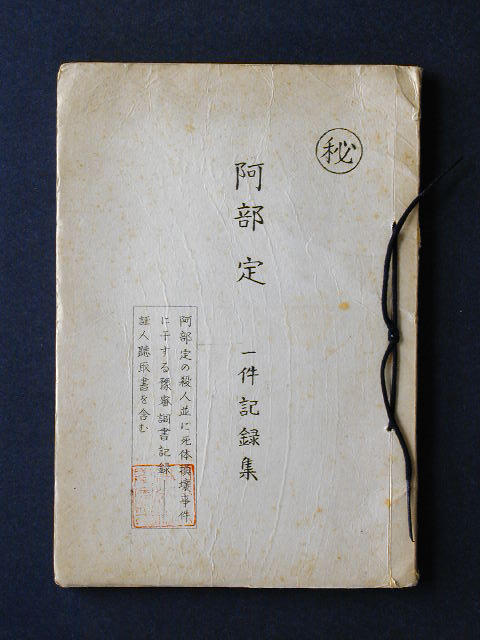 ㊙
阿部定 一件記録集
阿部定の殺人並に死体損壊事件
に干する豫審調書記録
証人聴取書を含む